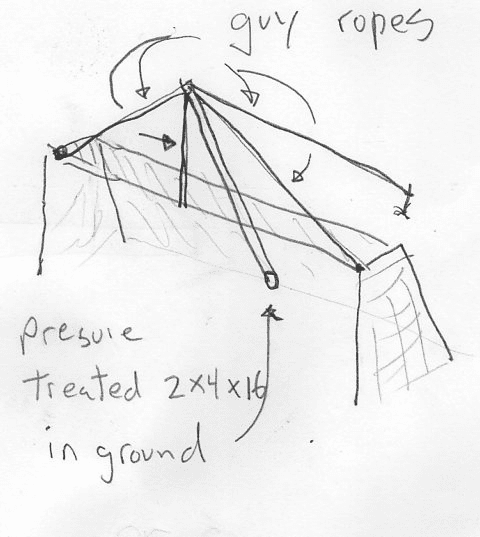 guy ropes
presure
treated 2x4x16
in ground